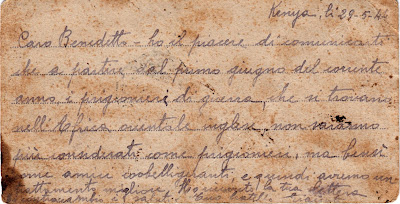 Kenya, li 29-5-44
Caro Benedetto - ho il piacere di comunicarti
che a partire dal primo giugno del corrente
anno i prigionieri di guerra, che si trovano
nell'Africa orientale inglese non saranno
più considerati come prigionieri, ma bensì
come amici cobelligeranti e quindi avremo un
trattamento migliore. Ho ricevuto la tua lettera
saluti. tuo